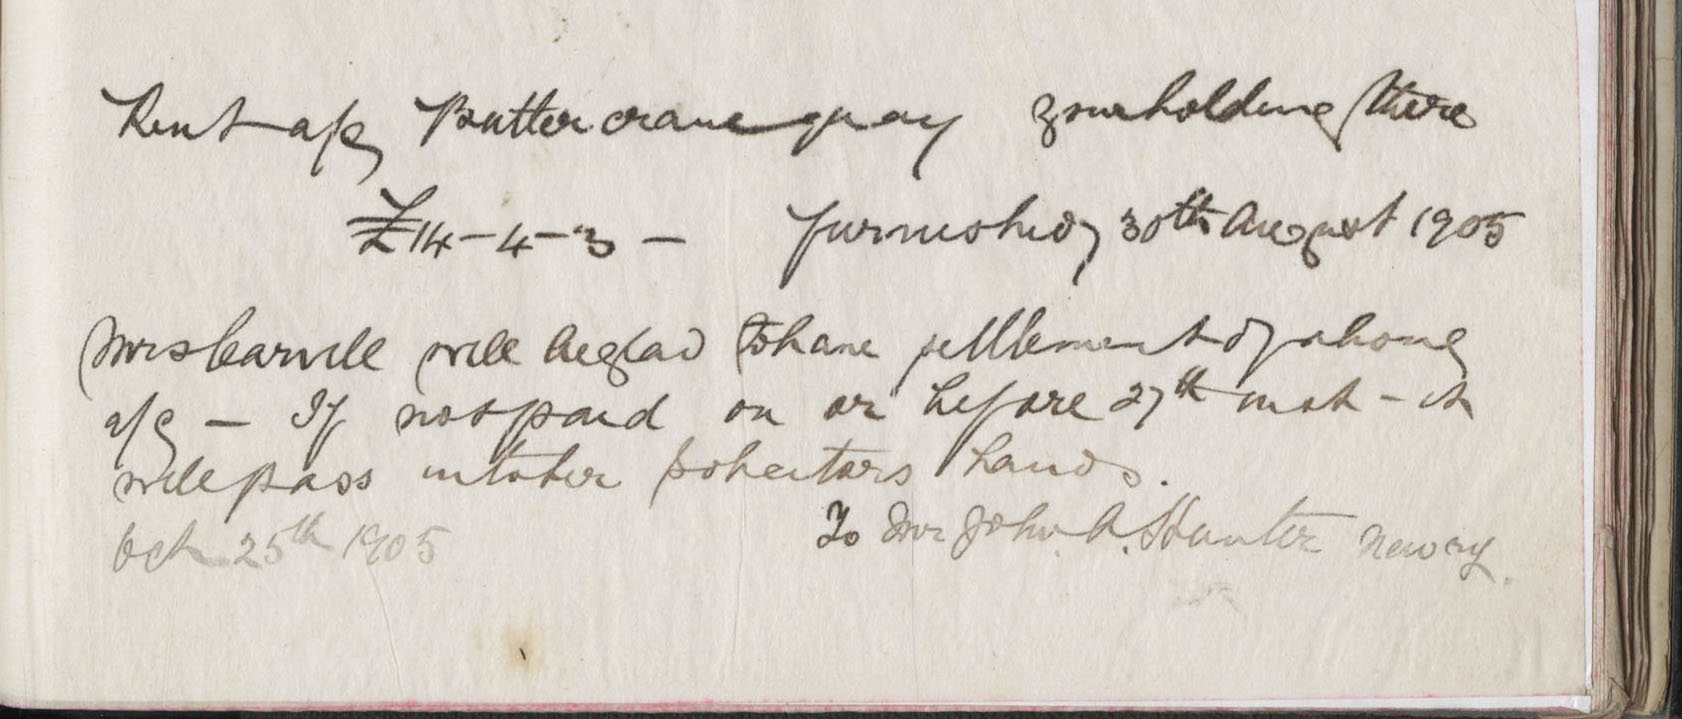 Rent a/c Buttercrane quay your holding there
£14-4-3 - furnished, 30th August 1905
Mrs Carvill will be glad to have settlement of above
a/c - If not paid on or before 27th inst - it
will pass into her solicitors hands.
Oct 25th 1905 To Mr John A. Hunter Newry.